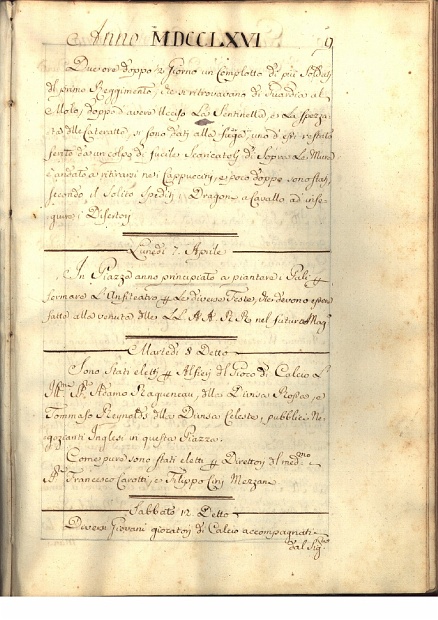 Anno MDCCLXVI
9
Due ore doppo il Giorno un Complotto di più Soldati
del primo Reggimento, che si ritrovavano di Guardia al
Molo, doppo d'avere Ucciso La Sentinella, e La spezza-
ta delle Cateratte, si sono dati alla fuga, uno d'essi restato
ferito da un colpo di fucile Scaricatoli di Sopra Le Mura
è andato a ritirarsi nei Cappuccini, e poco doppo sono stati
secondo il Solito Spediti i Dragoni a Cavallo ad inse-
guire i Disertori
Lunedì 7. Aprile
In Piazza anno principiato a piantare i Pali
formare L'Anfiteatro Le diverse Feste, che devono essere
fatte alla venuta delle LL. AA. RR. nel futuro Mag.
Martedì 8 Detto
Sono Stati eletti Alfieri del Gioco di Calcio
Adamo Raqueneau, della Divisa Rossa, e
Tommaso Reynolds della Divisa Celeste, pubblici Ne-
gozzianti Inglesi in questa Piazza.
Come pure sono stati eletti Direttori del med.mo
Francesco Carotti, e Filippo Cini Mezzan
Sabbato 12. Detto
Diversi Giovani giocatori di Calcio accompagnati
dal Sig.